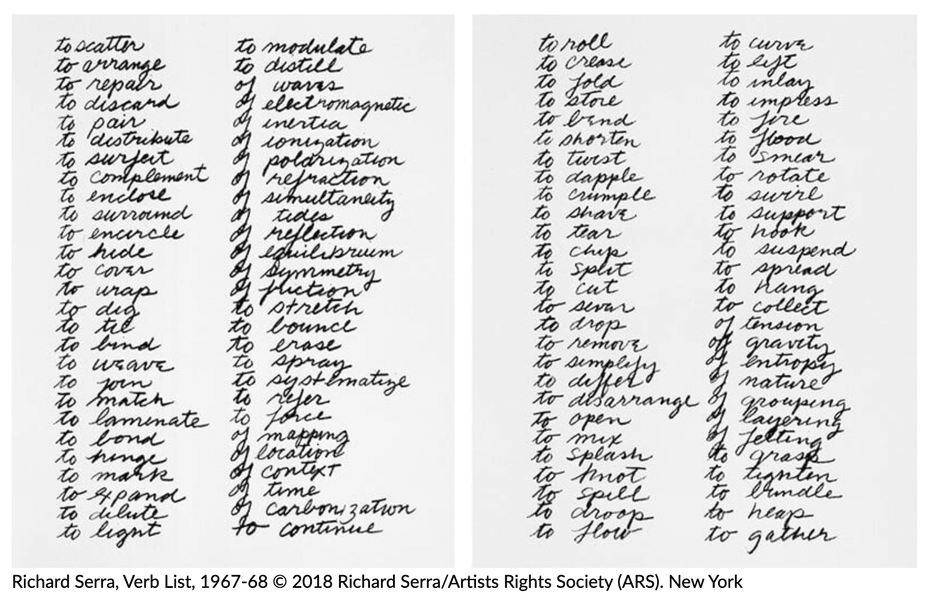 to scatter
to arrange
to repair
to discard
to pair
to distribute
to surfeit
to complement
to enclose
to surround
to encircle
to hide
to cover
to wrap
to dig
to tie
to bind
to weave
to join
to match
to laminate
to bond
to hinge
to mark
to expand
to dilute
to light
to modulate
to distill
of waves
of electromagnetic
of inertia
of ionization
of polarization
of refraction
of simultaneity
of tides
of reflection
of equilibrium
of symmetry
of friction
to stretch
to bounce
to erase
to spray
to systematize
to refer
to force
of mapping
of location
of context
of time
of carbonization
to continue
to roll
to crease
to fold
to store
to bend
to shorten
to twist
to dapple
to crumple
to shave
to tear
to chip
to split
to cut
to sever
to drop
to remove
to simplify
to differ
to disarrange
to open
to mix
to splash
to knot
to spill
to droop
to flow
to curve
to lift
to inlay
to impress
to fire
to flood
to smear
to rotate
to swirl
to support
to hook
to suspend
to spread
to hang
to collect
of tension
of gravity
of entropy
of nature
of grouping
of layering
of felting
to grasp
to tighten
to bundle
to heap
to gather
Richard Serra, Verb List, 1967-68 © 2018 Richard Serra/Artists Rights Society (ARS). New York